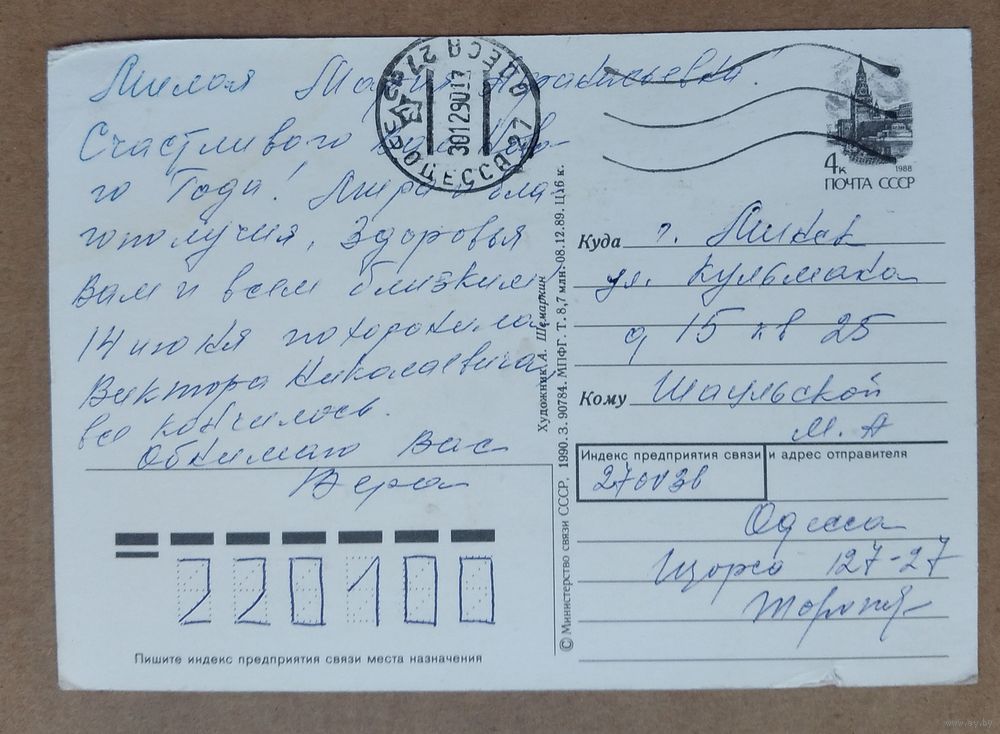 Милая Мария Афанасьевна!
Счастливого Вам Ново-
го Года! Мира и бла-
гополучия, Здоровья
Вам и всем близким
14 июня похоронила
Виктора Николаевича
все кончилось.
Обнимаю Вас
Вера
ОДЕССА 27
30129017
ОДЕССА 27
4к
1988
ПОЧТА СССР
Куда г. Минск
ул. Кульмана
д 15 кв 25
Кому Шаульской
М. А
Индекс предприятия связи и адрес отправителя
270036
Одесса
Щорса 127-27
220100
Пишите индекс предприятия связи места назначения
Художник А. Шемаркин
© Министерство связи СССР, 1990. З. 90784. МПФГ. Т. 8,7 млн. 08.12.89. Ц. 16 к.
www.ay.by